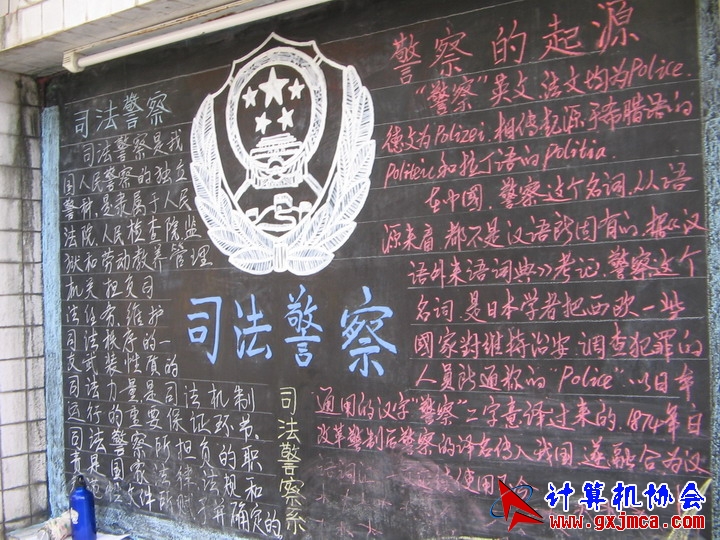 司法警察
司法警察是我
国人民警察的独立
警种,是隶属于人民
法院,人民检查院监
狱和劳动教养管理
机关担负司
法任务,维护
司法秩序的一
支武装性质的
司法力量是司法机制
运行的重要保证环节,
司法警察所担负的职
责是国家法律法规和
文件所赋予并确定的
司法警察
司法警察系
警察的起源
“警察”英文、法文均为Police.
德文为Polizei 相传起源于希腊语的
Politeic和拉丁语的Politia
在中國,警察这个名词,从语
源来看 都不是汉语所固有的,据《汉
语外来语词典》考记,警察这个
名词,是日本学者把西欧一些
國家对维持治安,调查犯罪的
人员所通称的“Police”以日本
通用的汉字“警察”二字意译过来的.1874年日
改革警制后警察的译名传入我国,逐融合为汉
使用
计算机协会
www.gxjmca.com